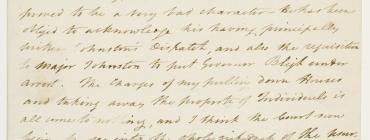 proved to be a very bad character. He has been
obliged to acknowledge his having principally
written Johnston's Dispatch, and also the requisition
to Major Johnston to put Governor Bligh under
arrest. The Charges of my pulling down Houses
and taking away the property of Individuals is
all come to nothing, and I think the Court now
begin to see into the whole of the